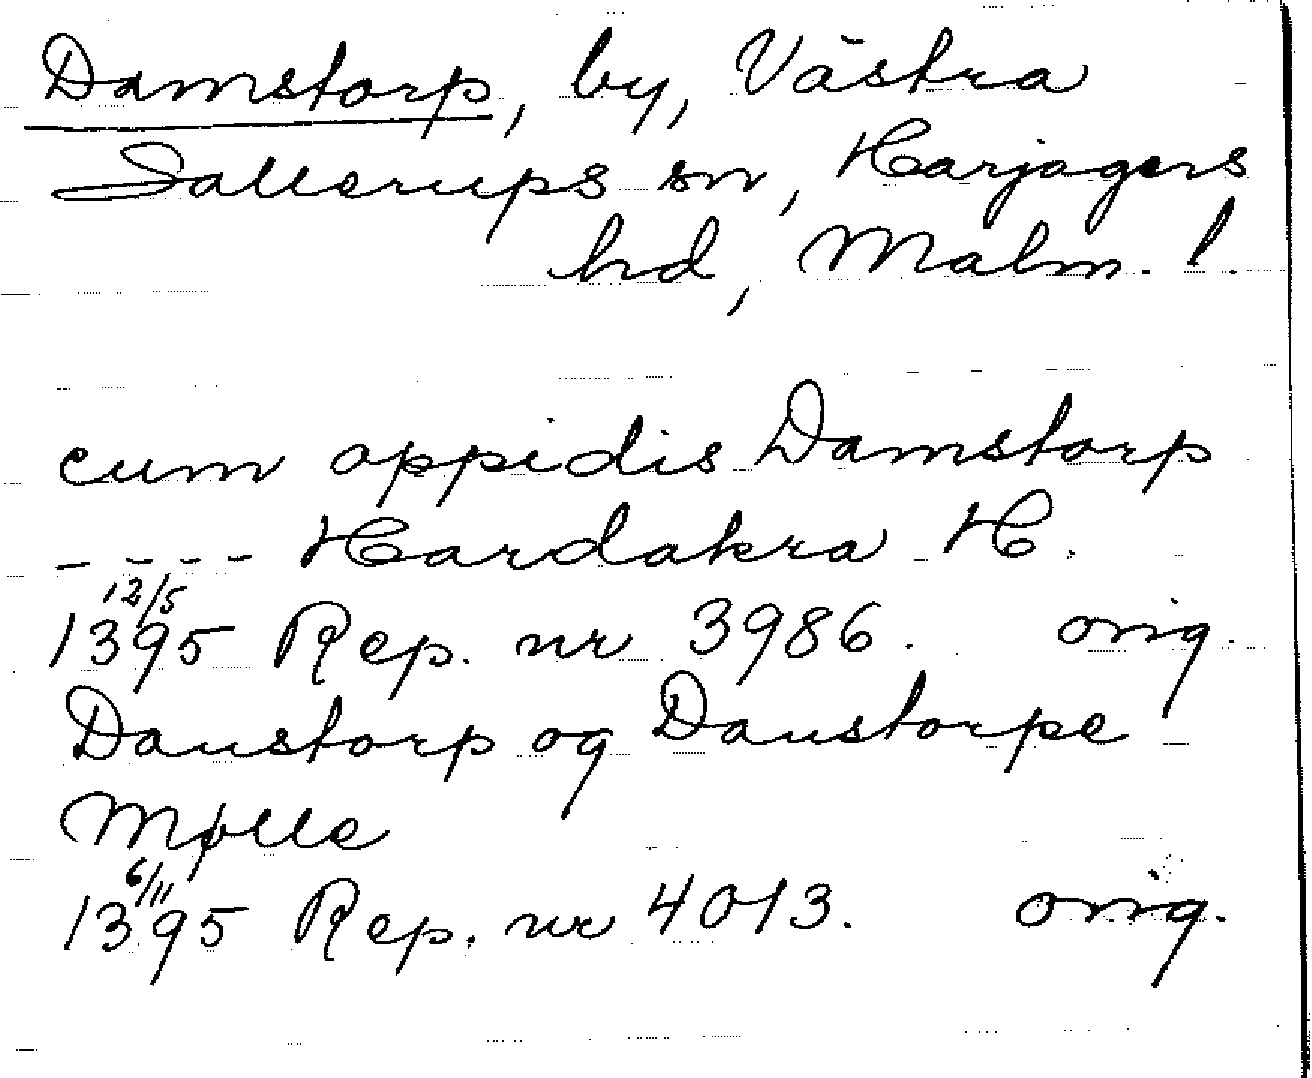 Damstorp, by, Västra
Sallerups sn, Harjagers
hd, Malm. l.
cum oppidis Damstorp
- - - - Hardakra H.
12/5
1395 Rep. nr 3986. orig.
Daustorp og Daustorpe
Mølle
6/11
1395 Rep. nr 4013. orig.